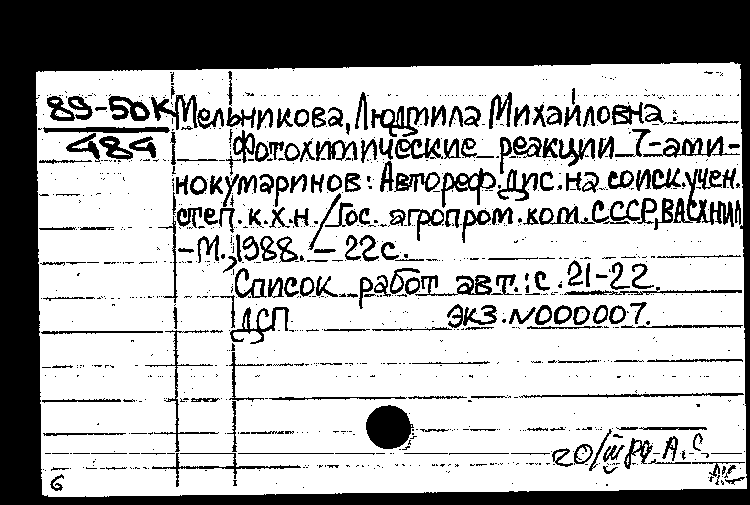 89-50к Мельникова, Людмила Михайловна.
484 Фотохимические реакции 7-ами-
нокумаринов: Автореф. дис. на соиск. учен.
степ. к.х.н. / Гос. агропром. ком. СССР, ВАСХНИЛ
-М., 1988. - 22 с.
Список работ авт.: с. 21-22.
ДСП экз. N000007.
20/III А.С.
А.С
6